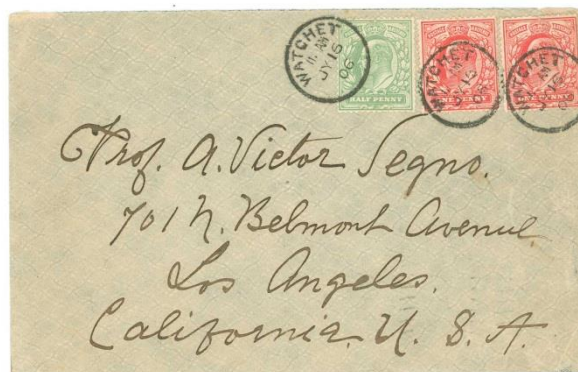 WATCHET
11 AM
JY 16
06
HALF PENNY
WATCHET
ONE PENNY
WATCHET
ONE PENNY
Prof. A. Victor Segno.
701 N. Belmont Avenue
Los Angeles.
California. U. S. A.